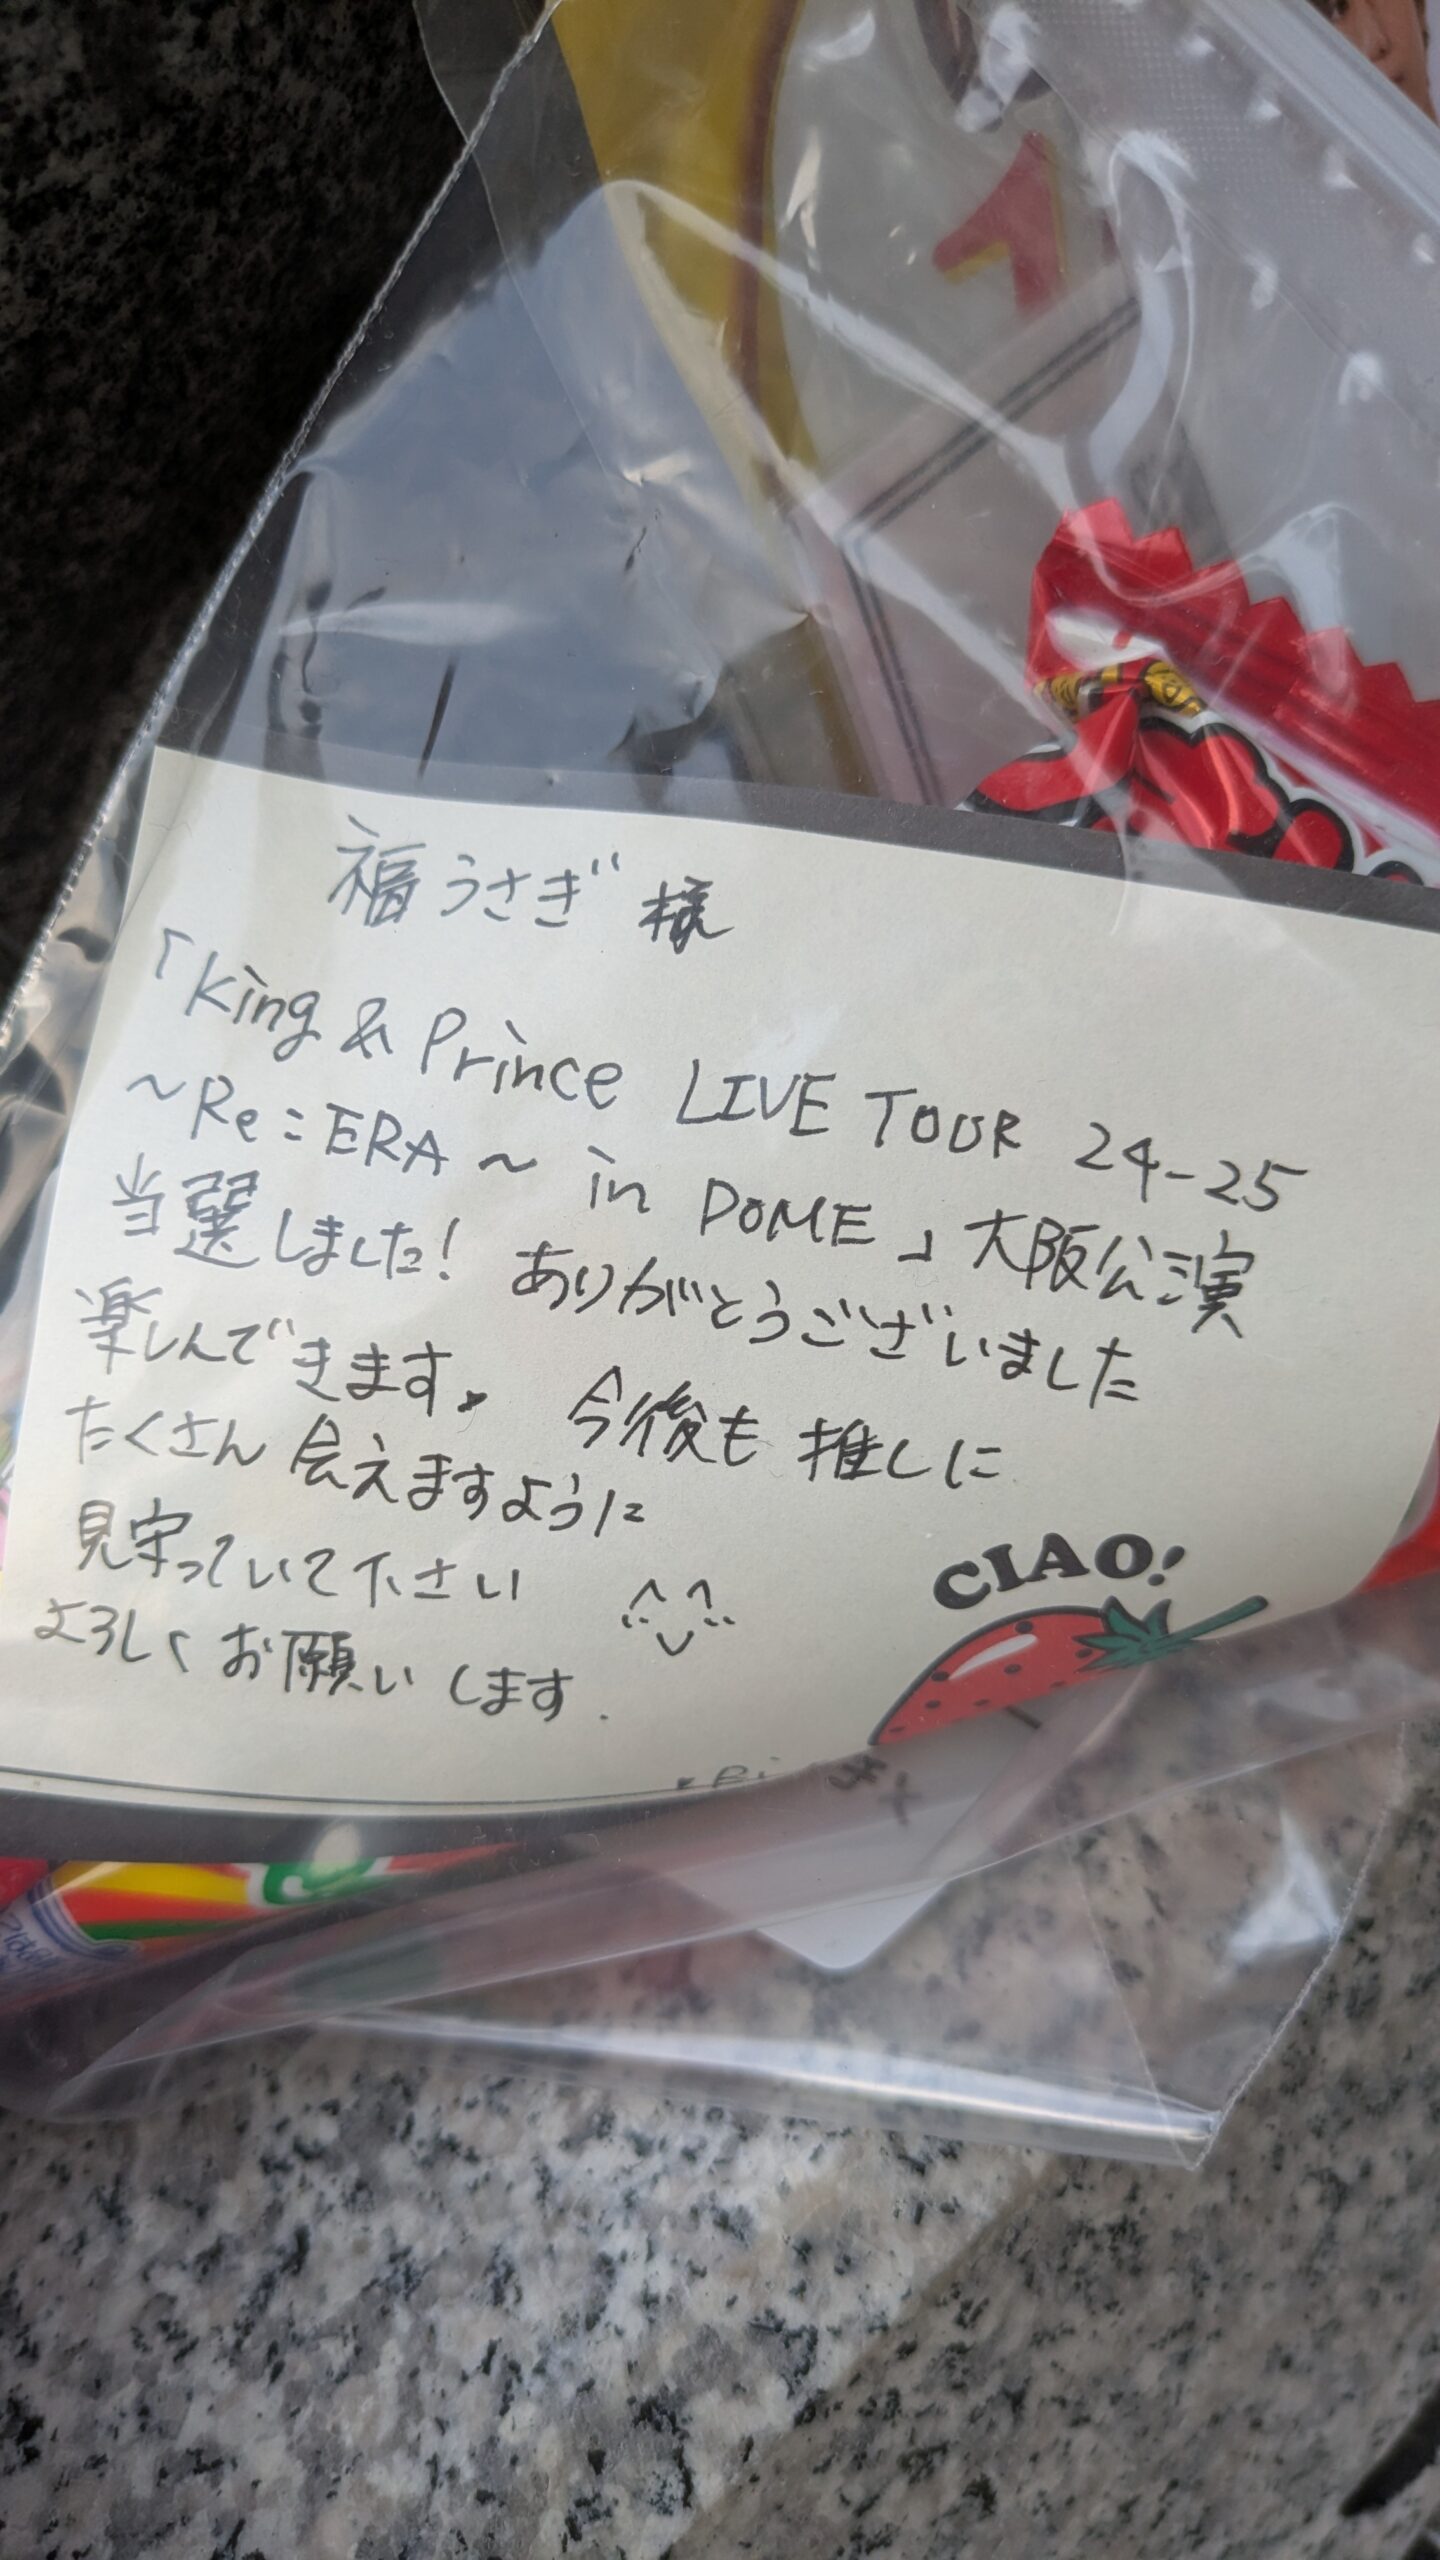 福うさぎ様
「King & Prince LIVE TOUR 24-25
～Re:ERA～ in DOME」大阪公演
当選しました! ありがとうございました
楽しんできます。 今後も推しに
たくさん会えますように
見守っていて下さい
よろしくお願いします.
CIAO!